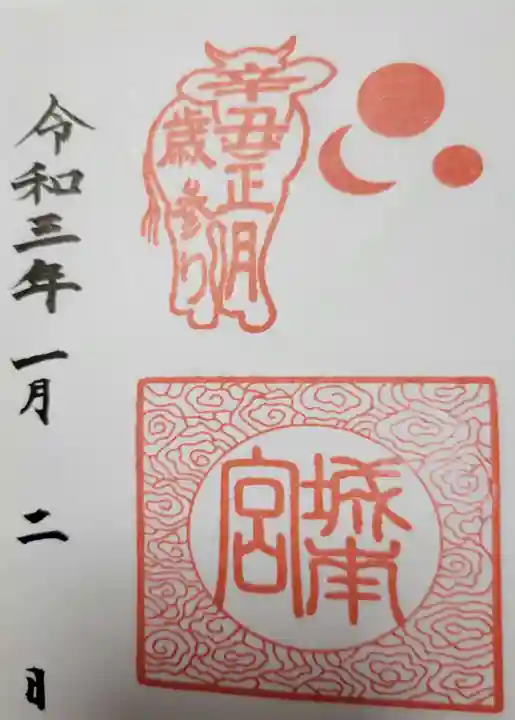 辛丑正月
歳参り
城南宮
令和三年一月二日